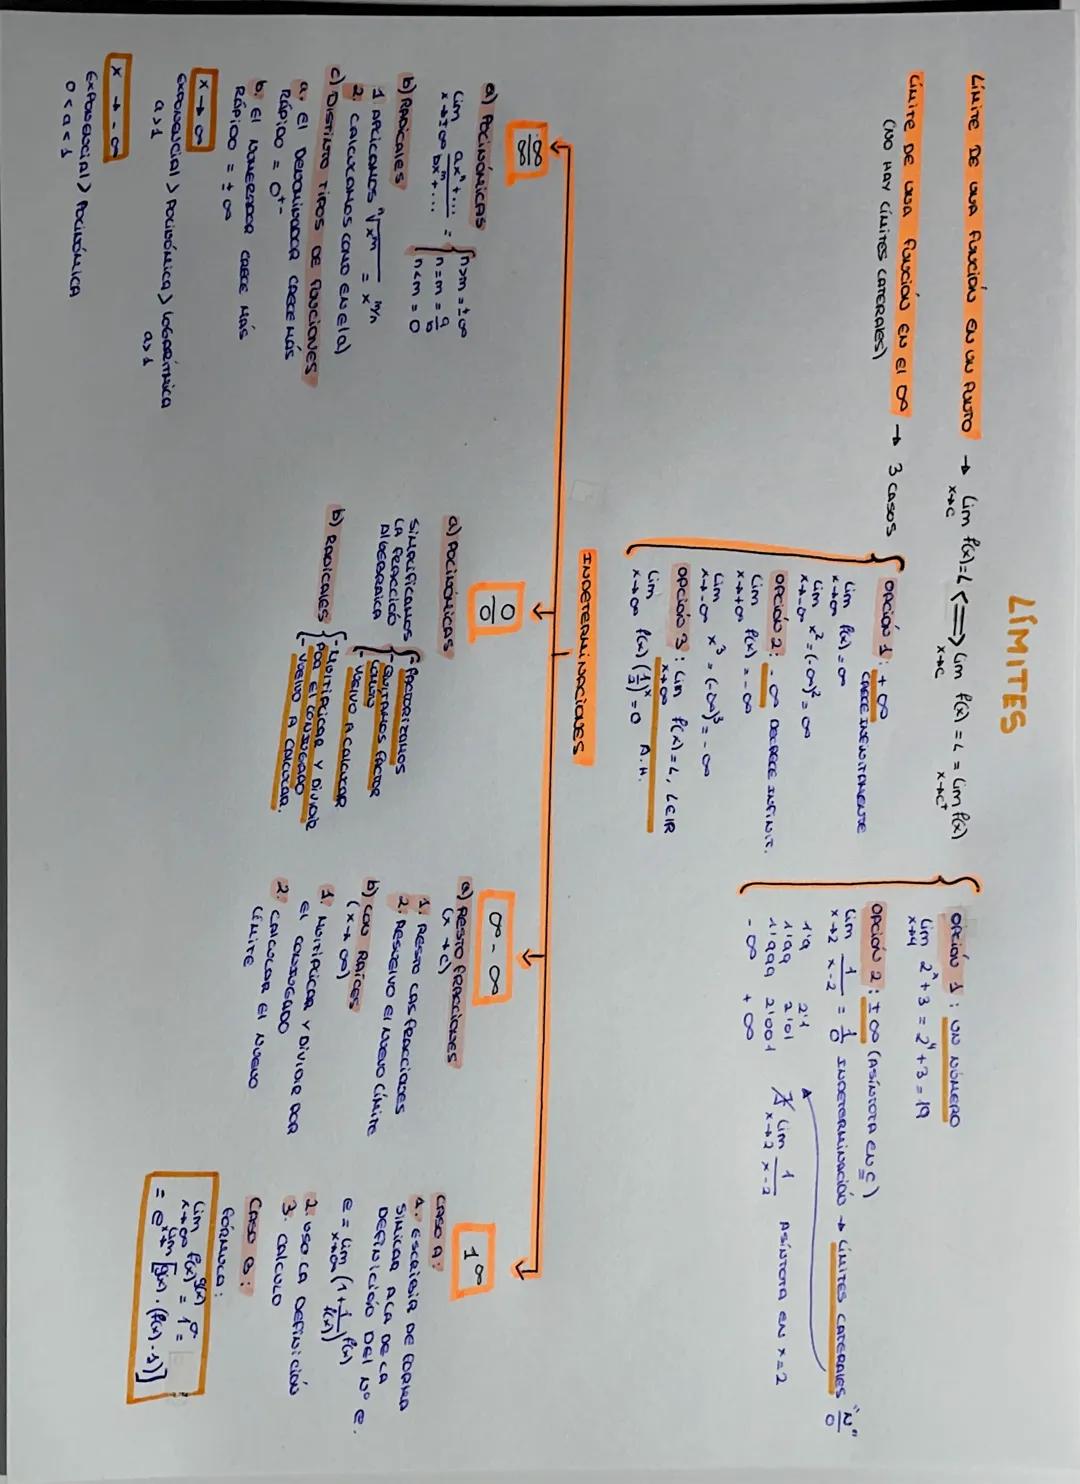 LÍMITES
LÍMITE DE UNA FUNCIÓN EN UN PUNTO → lim x→c f(x)=L <=> lim x→c f(x) = L = lim x→c⁺ f(x)
OPCIÓN 1: UN NÚMERO
lim x→4 2ˣ+3 = 2⁴+3 = 19
OPCIÓN 2: ±∞ (ASÍNTOTA EN C)
lim x→2 1/(x-2) = 1/0 INDETERMINACIÓN → LÍMITES LATERALES "N"/0
1'9 2'1
1'99 2'01
1'999 2'001
-∞ +∞
∄ lim x→2 1/(x-2) ASÍNTOTA EN X=2
LÍMITE DE UNA FUNCIÓN EN EL ∞ → 3 CASOS
(NO HAY LÍMITES LATERALES)
OPCIÓN 1: +∞
CRECE INFINITAMENTE
lim x→∞ f(x)=∞
lim x→-∞ x²=(-∞)²=∞
OPCIÓN 2: -∞ DECRECE INFINIT.
lim x→+∞ f(x)=-∞
lim x→-∞ x³=(-∞)³=-∞
OPCIÓN 3: lim x→∞ f(x)=L, LEIR
lim x→∞ f(x) (1/2)ˣ=0 A.H.
INDETERMINACIONES
∞/∞
a) POLINÓMICAS
lim x→±∞ (axⁿ+...)/(bxᵐ+...) = { n>m = ±∞
n=m = a/b
n<m = 0
b) RADICALES
1. APLICAMOS ⁿ√xᵐ = x^(m/n)
2. CALCULAMOS COMO EN EL a)
c) DISTINTO TIPOS DE FUNCIONES
a. EL DENOMINADOR CRECE MÁS
RÁPIDO = 0⁺⁻
b. EL NUMERADOR CRECE MÁS
RÁPIDO = ±∞
X → ∞
EXPONENCIAL > POLINÓMICA > LOGARÍTMICA
a>1 a>1
X → -∞
EXPONENCIAL > POLINÓMICA
0<a<1
0/0
a) POLINÓMICAS
SIMPLIFICAMOS
LA FRACCIÓN
ALGEBRAICA
- FACTORIZAMOS
- QUITAMOS FACTOR
COMÚN
- VUELVO A CALCULAR
b) RADICALES
- MULTIPLICAR Y DIVIDIR
POR EL CONJUGADO
- VUELVO A CALCULAR.
∞ - ∞
a) RESTO FRACCIONES
(x → c)
1. RESTO LAS FRACCIONES
2. RESUELVO EL NUEVO LÍMITE
b) CON RAÍCES
(x → ∞)
1. MULTIPLICAR Y DIVIDIR POR
EL CONJUGADO
2. CALCULAR EL NUEVO
LÍMITE
1^∞
CASO A:
1. ESCRIBIR DE FORMA
SIMILAR A LA DE LA
DEFINICIÓN DEL Nº e.
e = lim x→∞ (1+1/f(x))^f(x)
2. USO LA DEFINICIÓN
3. CALCULO
CASO B:
FÓRMULA:
lim x→∞ f(x)^g(x) = 1^∞ =
= e^lim x→∞ [g(x)·(f(x)-1)]